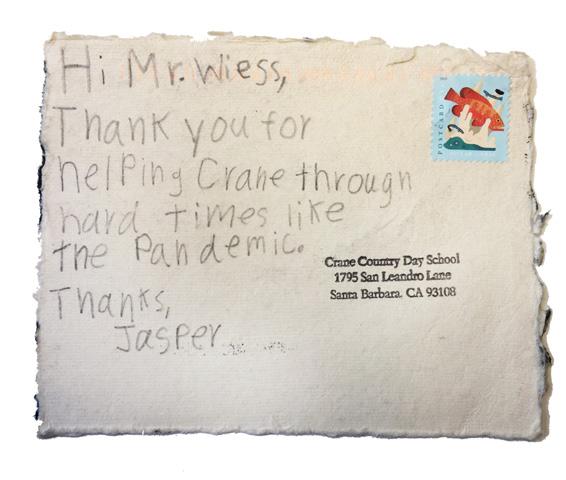 Hi Mr. Wiess,
Thank you for
helping Crane through
hard times like
the Pandemic.
Thanks,
Jasper
POSTCARD
Crane Country Day School
1795 San Leandro Lane
Santa Barbara, CA 93108